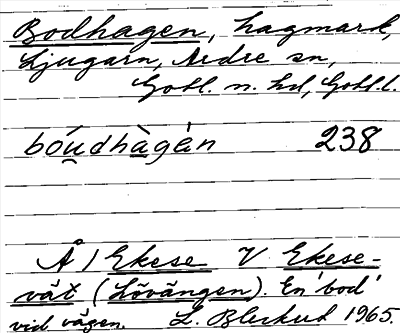 Bodhagen, hagmark,
Ljugarn, Ardre sn,
Gotl. n. hd, Gotl. l.
bóu̲dhà̲gèn 238
Å / Ekese V Ekese-
vät (Lövängen). En 'bod'
vid vägen. L. 1965.